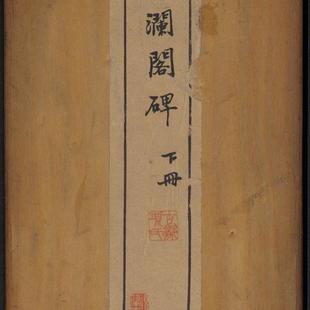 瀾閣碑
下冊